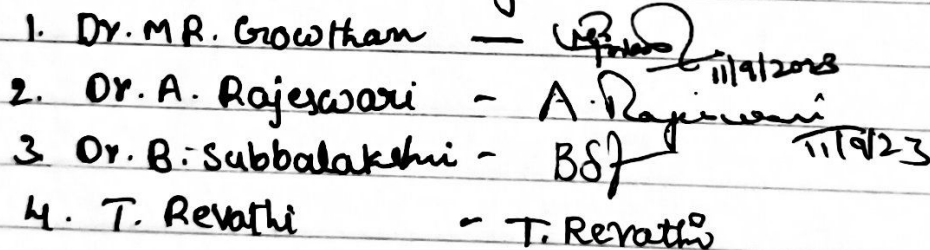 1. Dr. MR. Growtham —
11/9/2023
2. Dr. A. Rajeswari - A. Rajeswari
11/9/23
3 Dr. B. Subbalakshmi - BS
4. T. Revathi - T. Revathi